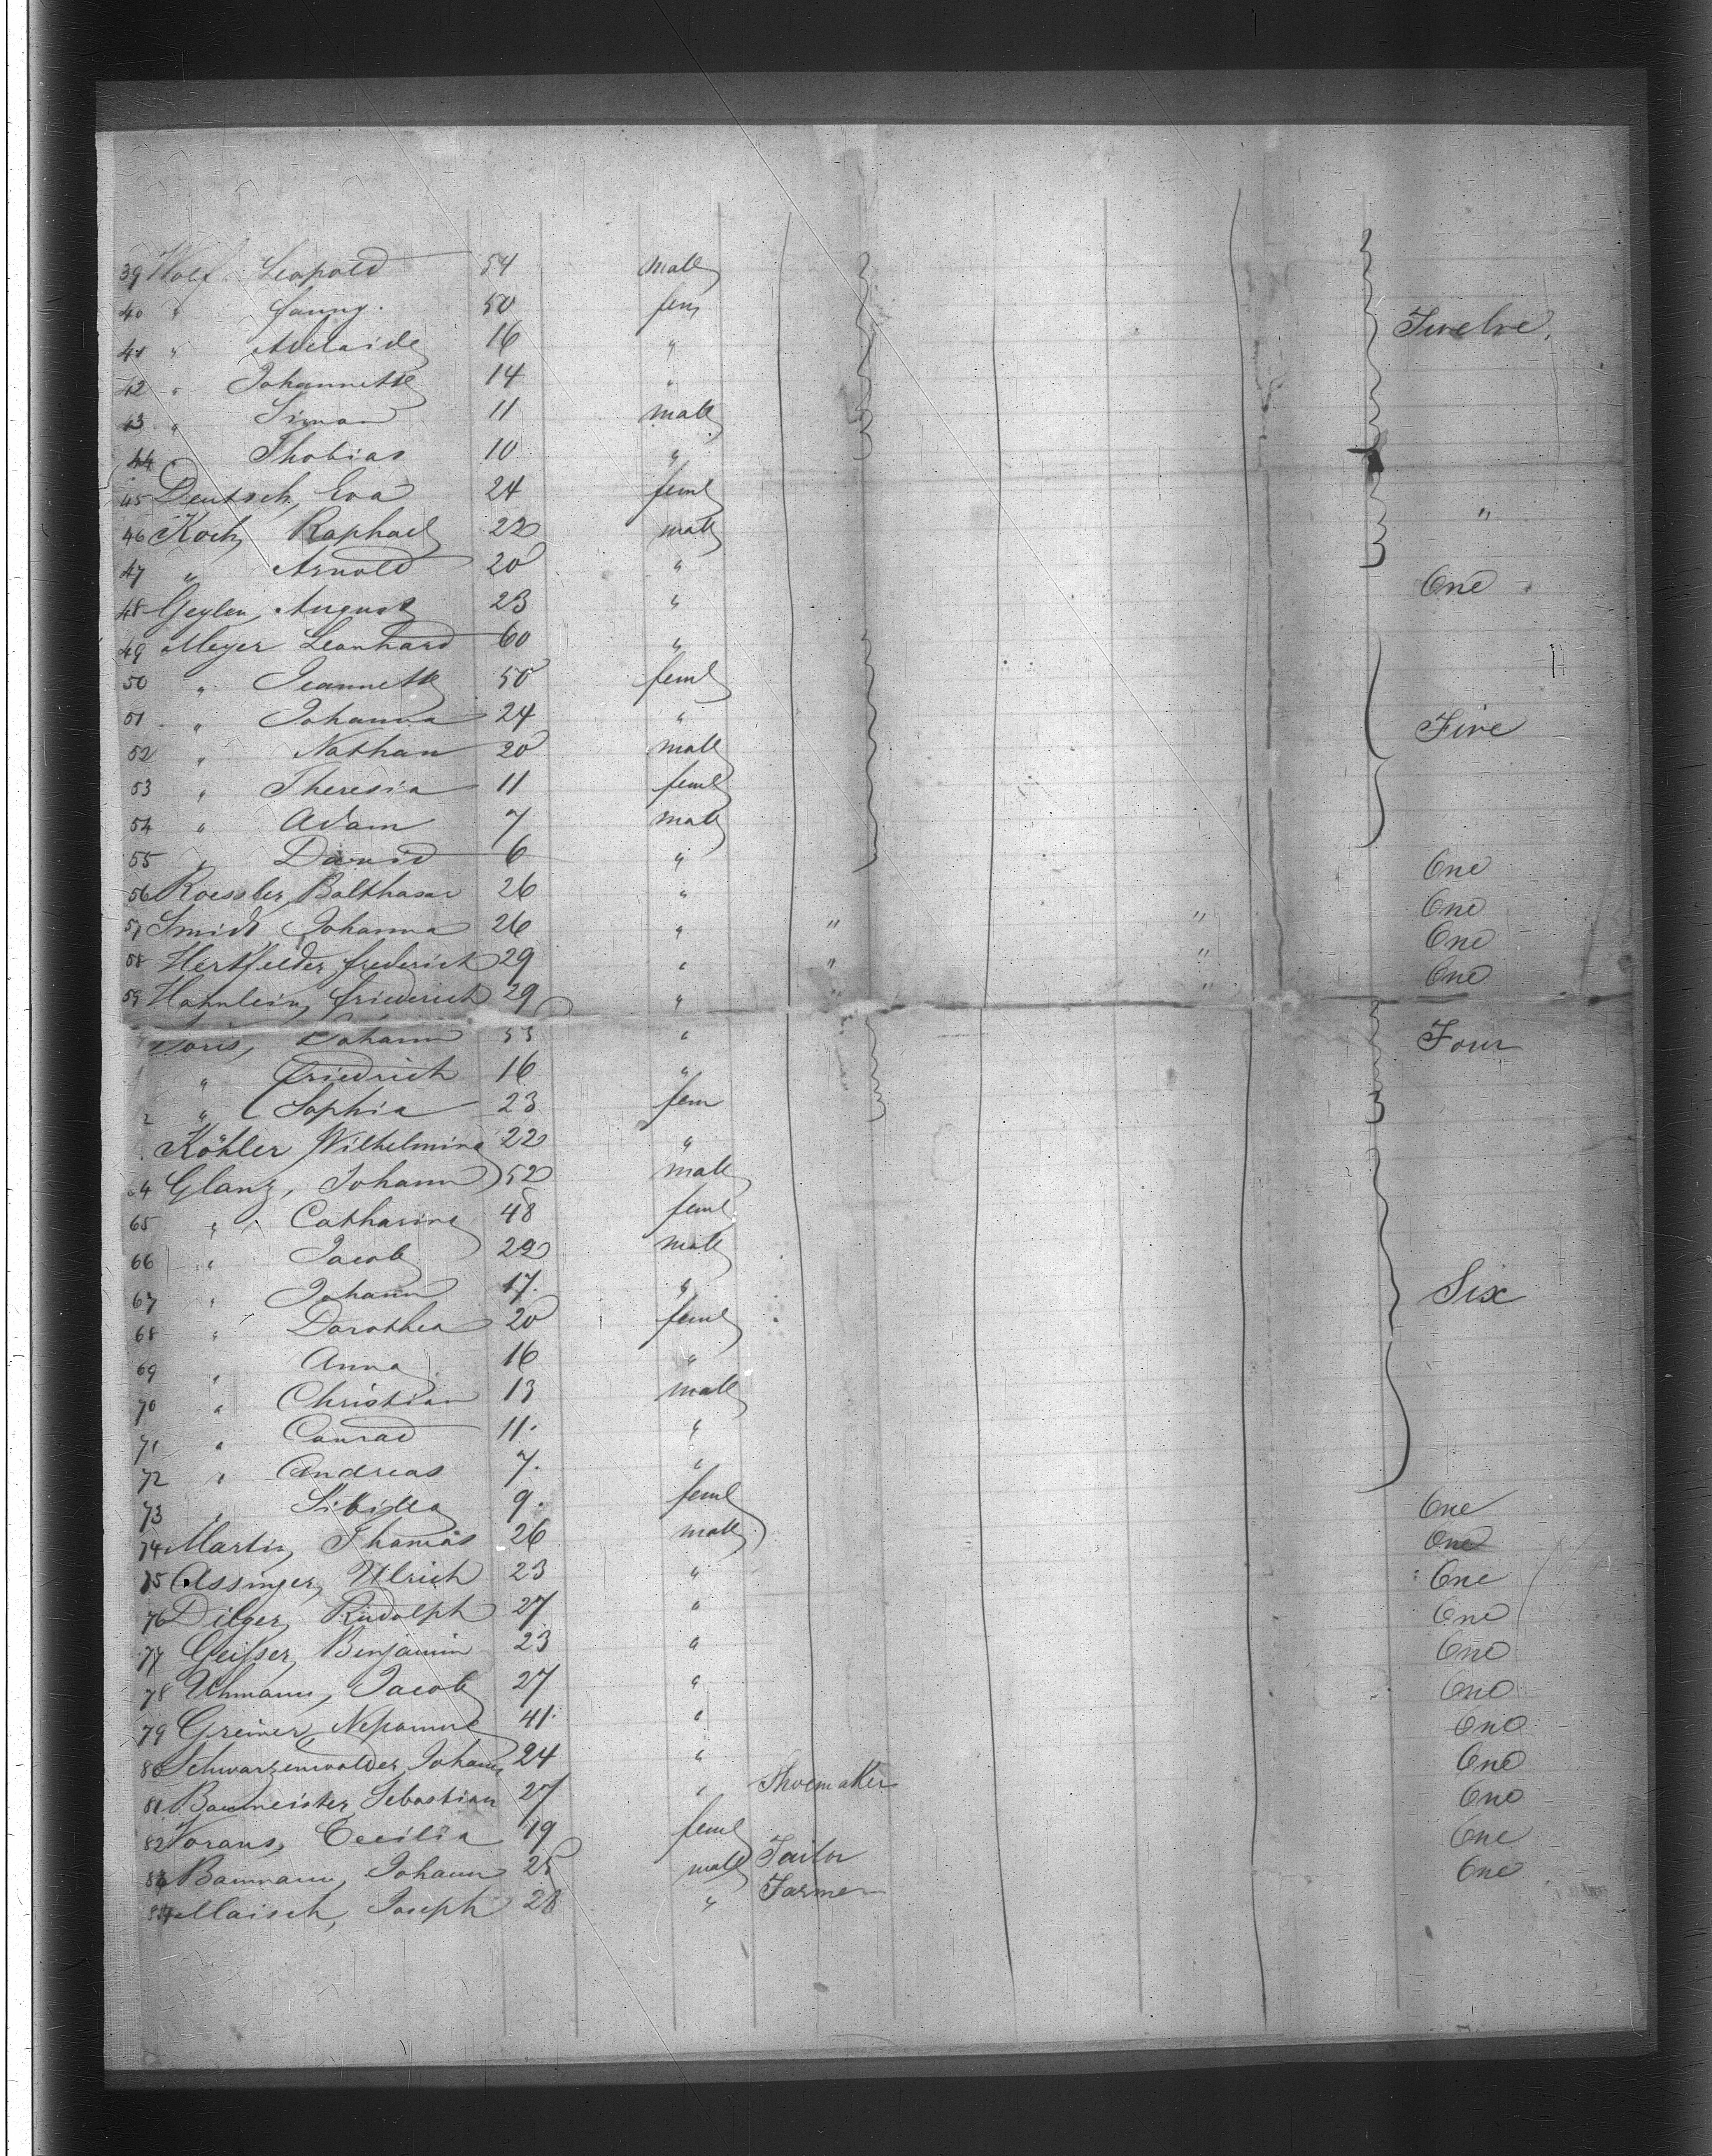 39 Wolf Leopold 54 male
40 " fanny. 50 fem Twelve,
41 " Adelaide 16 "
42 " Johannette 14 "
43 " Siman 11 male
44 " Thobias 10 "
45 Deutsch, Eva 24 feml "
46 Koch, Raphael 22 male
47 " Arnold 20 " One
48 Geylen, August 23 "
49 Meyer Leonhard 60 "
50 " Jeannette 50 feml
51 " Johanna 24 " Five
52 " Nathan 20 male
53 " Theresia 11 feml
54 " Adam 7 male
55 " David 6 " One
56 Roessler, Balthasar 26 " One
57 Smidt Johanna 26 " " " One
58 Hertfelder, frederick 29 " " " One
59 Hahnlein, friederich 29 " " "
Johann " Four
" Friedrich 16 "
2 " Sophia 23 fem
Köhler Wilhelmine 22 "
64 Glanz, Johann 52 male
65 " Catharine 48 feml
66 " Jacob 22 male
67 " Johann 17. " Six
68 " Dorothea 20 feml
69 " Anna 16 "
70 " Christian 13 male
71 " Conrad 11. "
72 " Andreas 7. "
73 " Sibilla 9. feml One
74 Martin, Thomas 26 male One
75 Assinger, Ulrich 23 " One
76 Dilger, Rudolph 27 " One
77 Geisser, Benjamin 23 " One
78 Uhmann, Jacob 27 " One
79 Greiner, Nepomuc 41. " One
80 Schwarzenwalder, Johann 24 " One
81 Baumeister, Sebastian 27 " Shoemaker One
82 Vorans, Cecilia 19 feml One
83 Baumann, Johann 25 male Tailor One
84 Maisch, Joseph 28 " Farmer